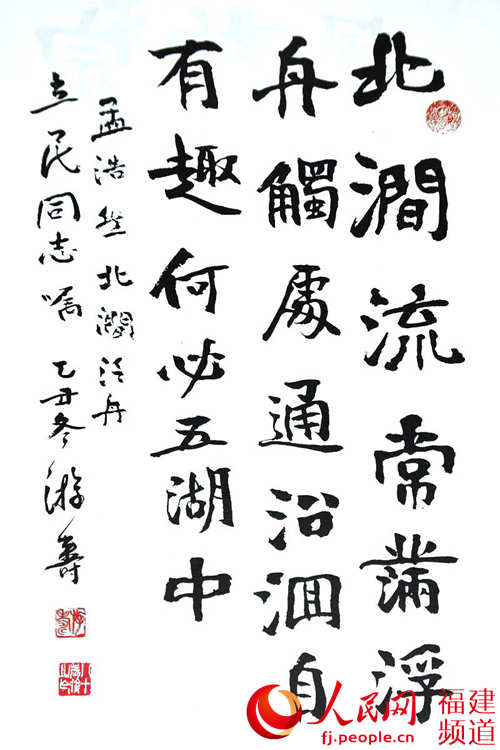 北澗流常滿浮
舟觸處通沿洄自
有趣何必五湖中
孟浩然北澗泛舟
立民同志嘱 乙丑冬游壽
人民网 福建频道
fj.people.cn